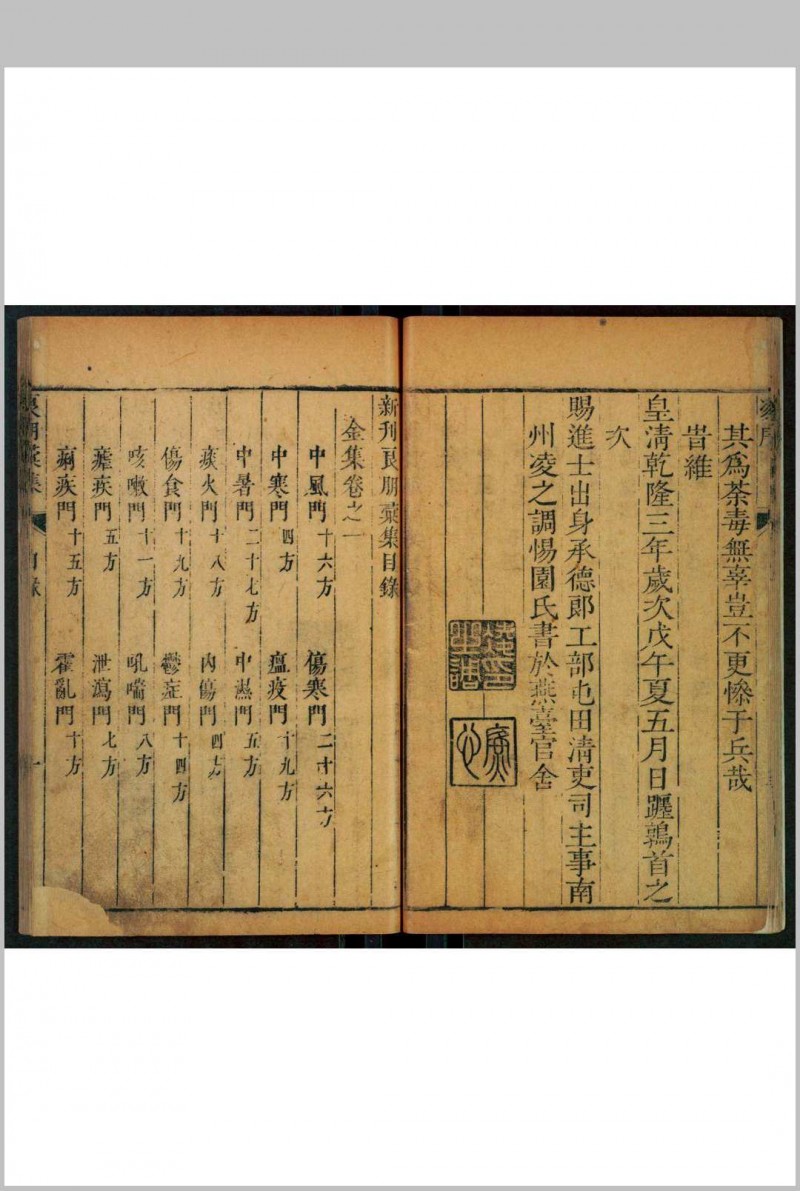 其為荼毒無辜豈不更慘于兵哉
旹維
皇清乾隆三年歲次戊午夏五月日躔鶉首之
次
賜進士出身承德郎工部屯田清吏司主事南
州凌之調惕園氏書於燕臺官舍
新刊良朋彙集目錄
金集卷之一
中風門十六方 傷寒門二十六方
中寒門四方 瘟疫門十九方
中暑門二十七方 中濕門五方
痰火門十八方 內傷門四方
傷食門十九方 鬱症門十四方
咳嗽門十一方 吼喘門八方
瘧疾門五方 泄瀉門七方
痢疾門十五方 霍亂門十方
良朋彙集 目錄 一